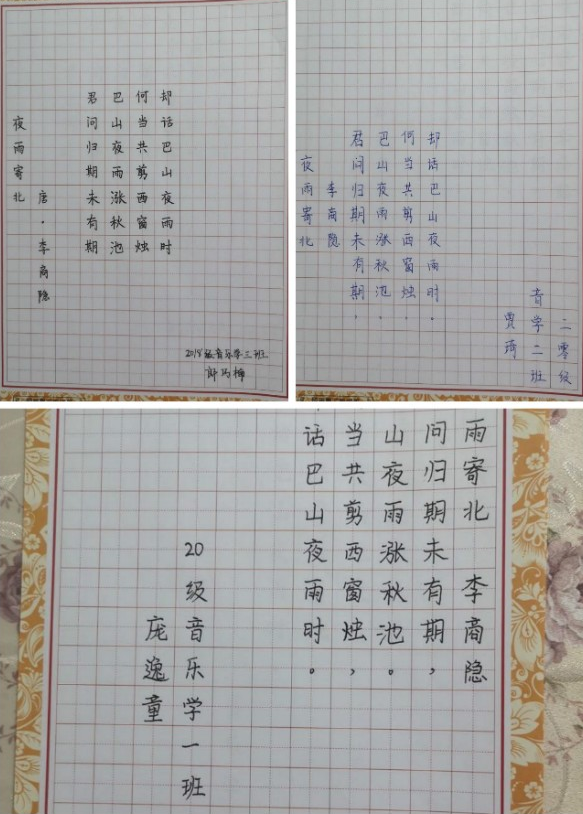 夜雨寄北
唐·李商隐
君问归期未有期
巴山夜雨涨秋池
何当共剪西窗烛
却话巴山夜雨时
2018级音乐学三班
夜雨寄北
李商隐
君问归期未有期，
巴山夜雨涨秋池，
何当共剪西窗烛，
却话巴山夜雨时。
二零级
音学二班
贾琦
雨寄北 李商隐
问归期未有期，
山夜雨涨秋池。
当共剪西窗烛，
话巴山夜雨时。
20级音乐学一班
庞逸童